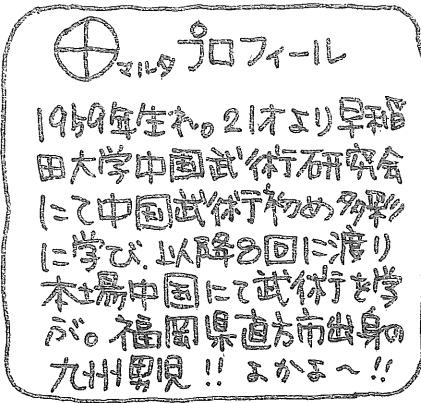 マルタ プロフィール
1959年生れ。21才より早稲
田大学中国武術研究会
にて中国武術初め多彩
に学び、以降8回に渡り
本場中国にて武術を学
ぶ。福岡県直方市出身の
九州男児!! よかよ〜!!